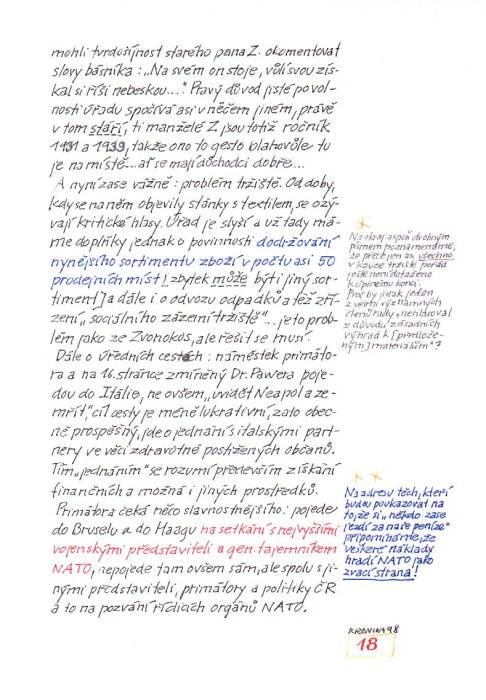 mohli tvrdošíjnost starého pana Z. okomentovat
slovy básníka: „Na svém on stojе, vůlí svou zís-
kal si říši nebeskou...“ Pravý důvod jisté povol-
nosti úřadu spočívá asi v něčem jiném, právě
v tom stáří, ti manželé Z jsou totiž ročník
1931 a 1933, takže ono to gesto blahovůle tu
je na místě... ať se mají důchodci dobře...
A nyní zase vážně: problém tržiště. Od doby,
kdy se na něm objevily stánky s textilem, se ozý-
vají kritické hlasy. Úřad je slyší a už tady má-
me doplňky jednak o povinnosti dodržování
nynějšího sortimentu zboží v počtu asi 50
prodejních míst [zbytek může být i jiný sor-
timent] a dále i o odvozu odpadků a též zří-
zení „sociálního zázemí tržiště“... je to prob-
lém jako ze Zvonokos, ale řešit se musí.
Dále o úředních cestách: náměstek primáto-
ra a na 16. stránce zmíněný Dr. Pawera poje-
dou do Itálie, ne ovšem „uvidět Neapol a ze-
mřít“, cíl cesty je méně lukrativní, zato obec-
ně prospěšný, jde o jednání s italskými part-
nery ve věci zdravotně postižených občanů.
Tím „jednáním“ se rozumí především získání
finančních a možná i jiných prostředků.
Primátora čeká něco slavnostnějšího: pojede
do Bruselu a do Haagu na setkání s nejvyššími
vojenskými představiteli a gen. tajemníkem
NATO, nepojede tam ovšem sám, ale spolu s ji-
nými představiteli, primátory a politiky ČR
a to na pozvání řídících orgánů NATO.
Na okraj aspoň drobným
písmem poznamenejme,
že přece jen asi všechno
v kauze tržiště pořád
ještě není dotaženo
k úplnému konci.
Proč by jinak jeden
z velmi významných
členů rady „nehlasoval
z důvodu zásadních
výhrad k [předlože-
ným] materiálům“?
Na adresu těch, kteří
budou poukazovat na
to, že si „někdo zase
jezdí za naše peníze“
připomínáme, že
veškeré náklady
hradí NATO jako
zvací strana!
KRONIKA 98
18